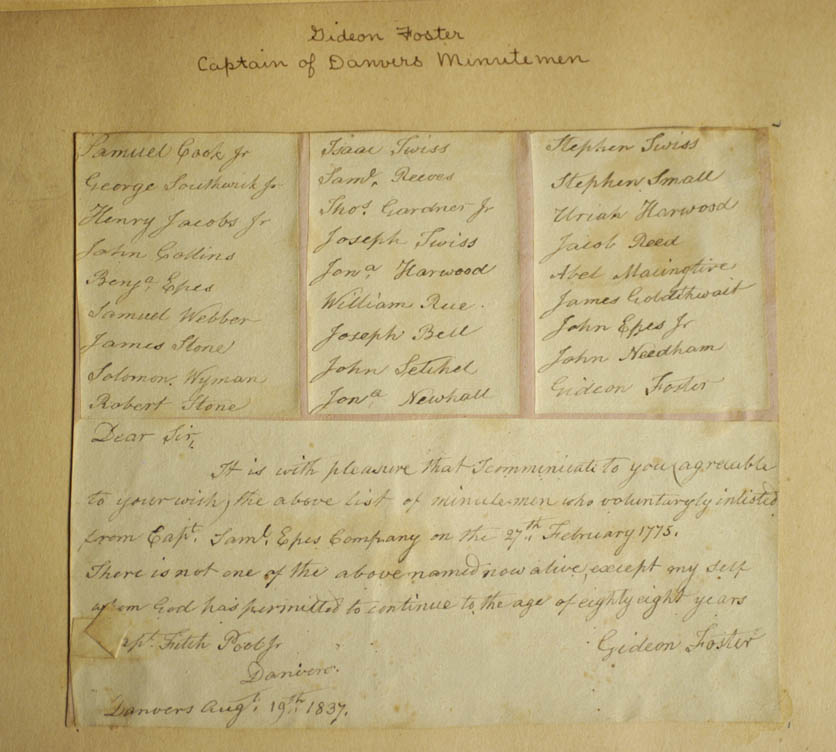 Gideon Foster
Captain of Danvers Minutemen
Samuel Cook Jr
George Southwick Jr
Henry Jacobs Jr
John Collins
Benja Epes
Samuel Webber
James Stone
Solomon Wyman
Robert Stone
Isaac Twiss
Saml. Reeves
Thos. Gardner Jr
Joseph Twiss
Jona Harwood
William Rue.
Joseph Bell
John Setchel
Jona Newhall
Stephen Twiss
Stephen Small
Uriah Harwood
Jacob Reed
Abel
James Goldthwait
John Epes Jr
John Needham
Gideon Foster
Dear Sir,
It is with pleasure that I communicate to you (agreeable
to your wish) the above list of minute-men who volunturyly inlisted
from Capt. Saml. Epes Company on the 27th February 1775.
There is not one of the above named now alive, except my self
whom God has permitted to continue to the age of eighty eight years
apt. Fitch Pool Jr
Gideon Foster
Danvers.
Danvers Augt. 19th 1837.